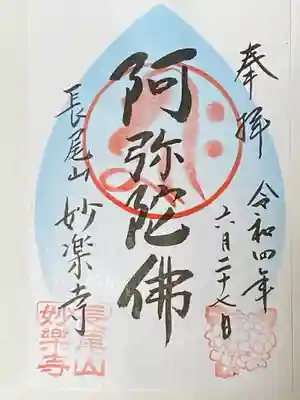 奉拝
令和四年
六月二十七日
阿弥陀佛
長尾山
妙楽寺
長尾山
妙樂寺